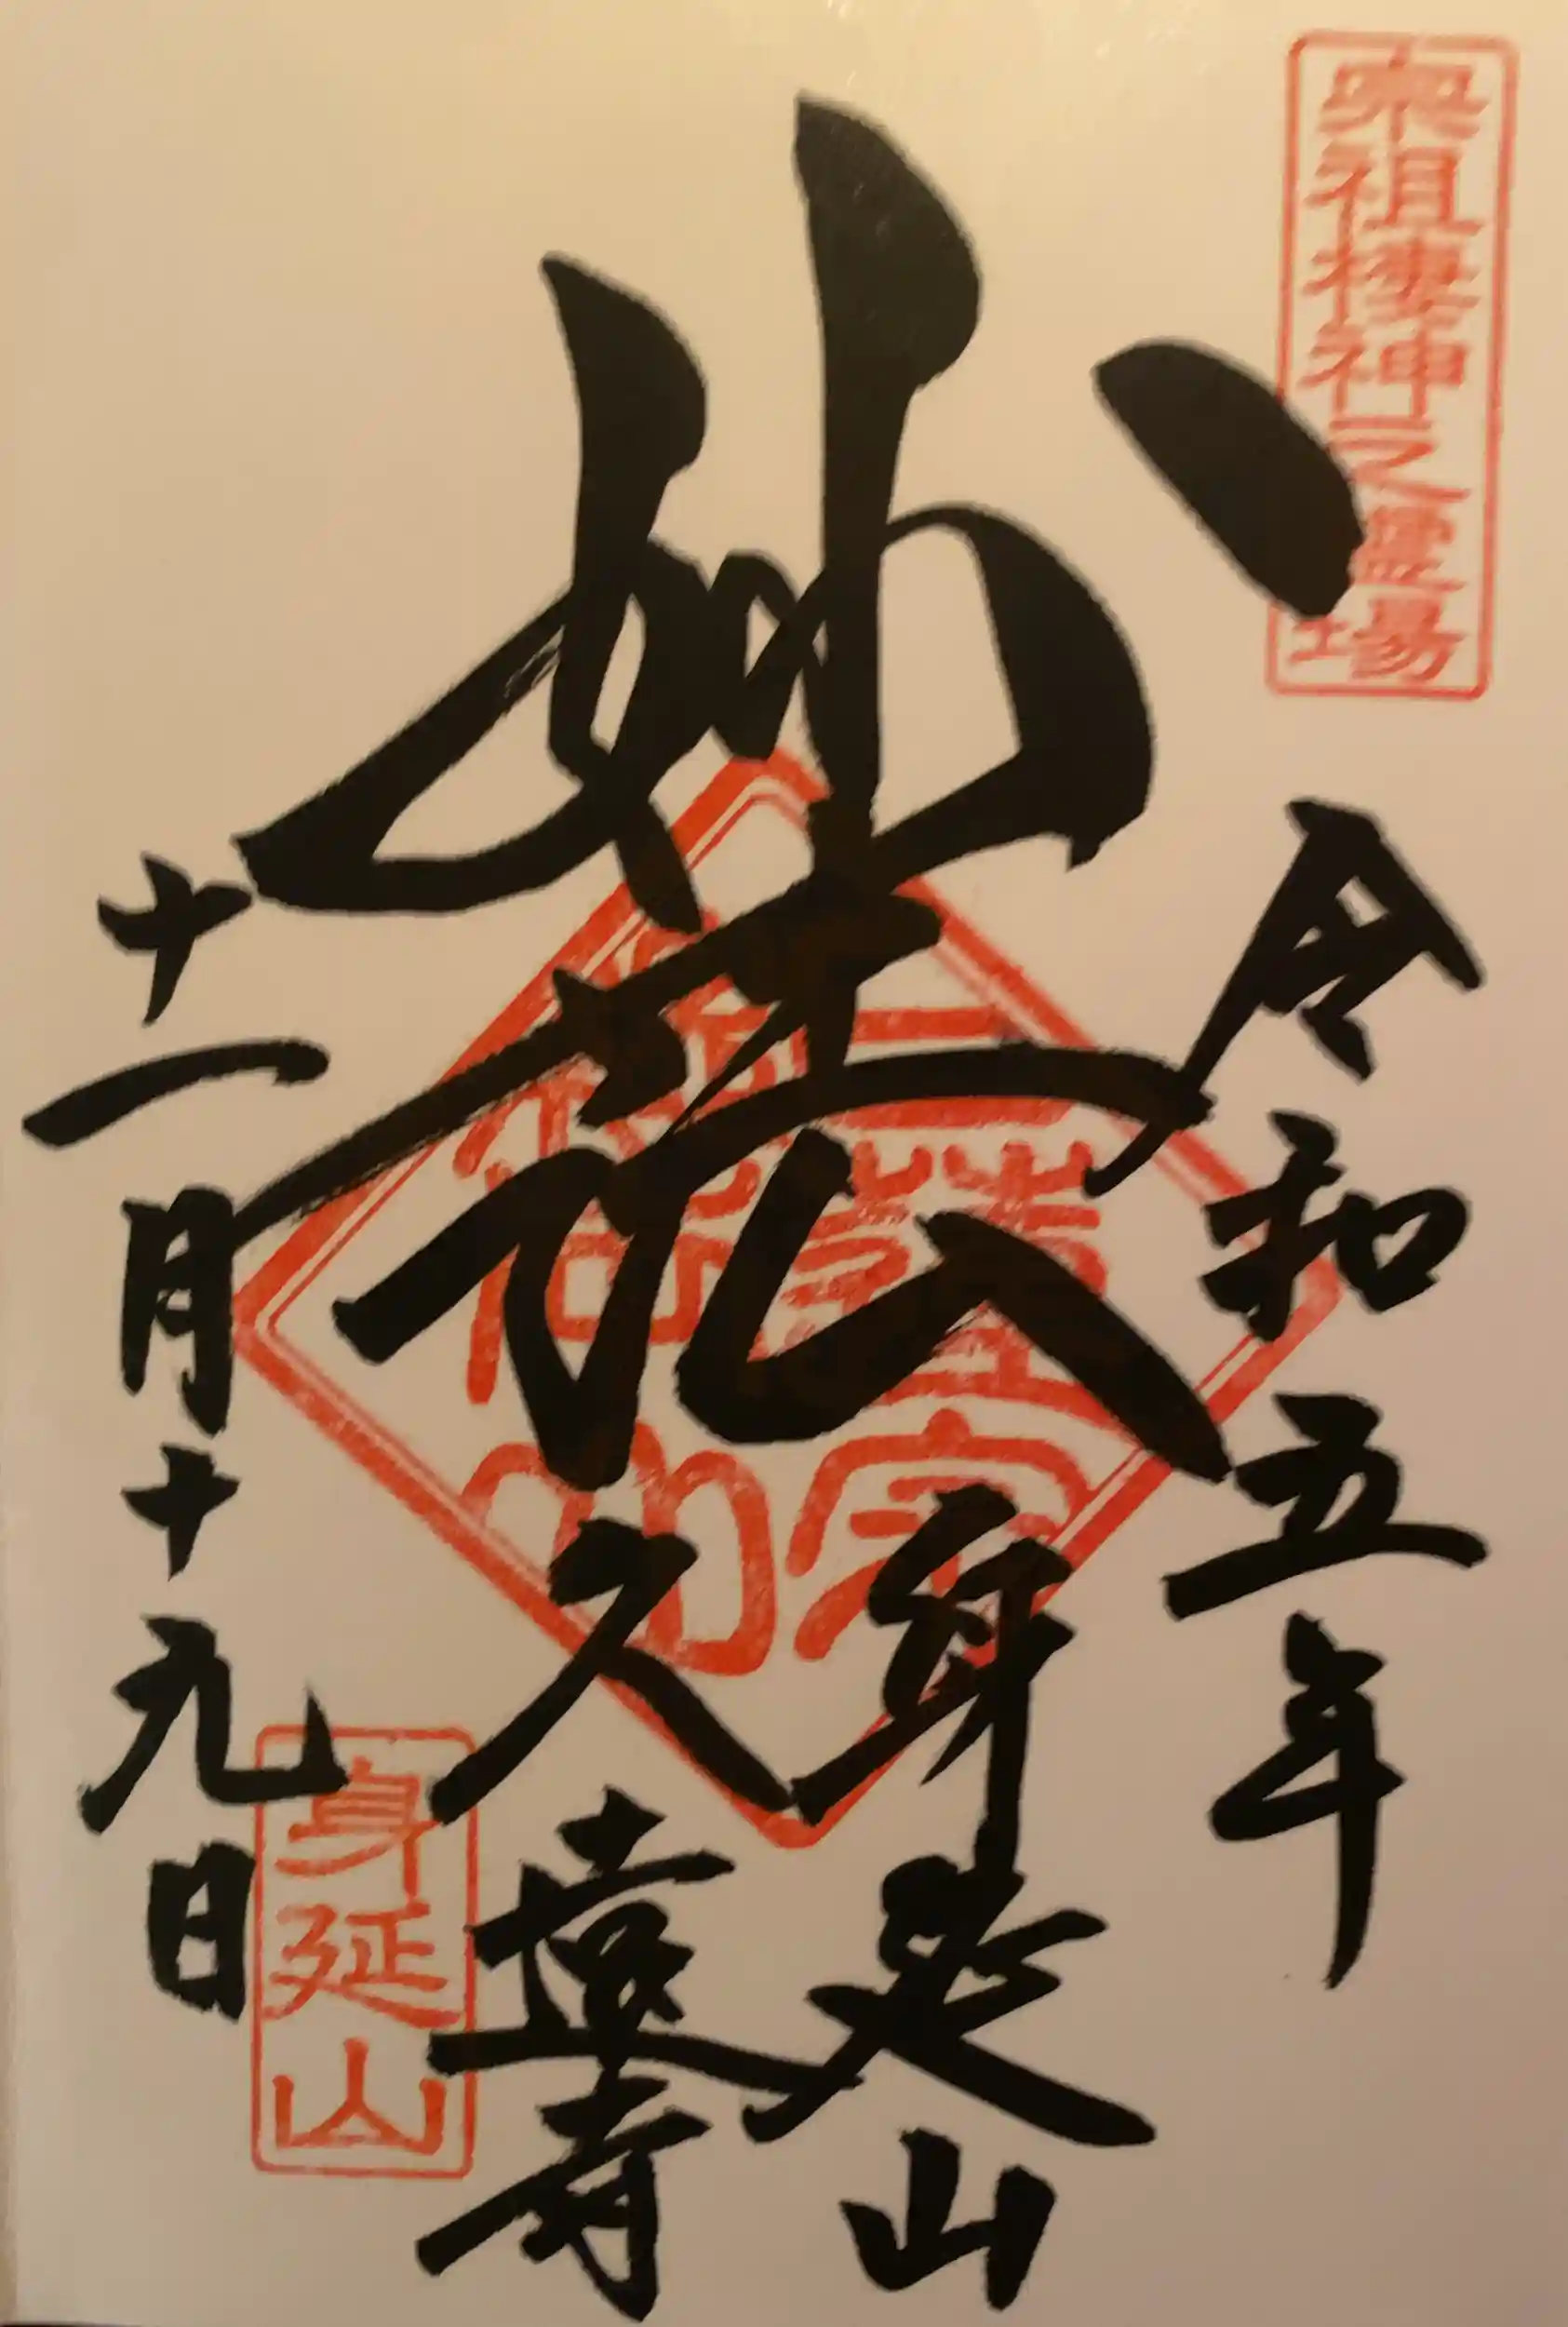 宗祖棲神之霊場
令和五年
妙法
身延山
久遠寺
十一月十九日
身延山